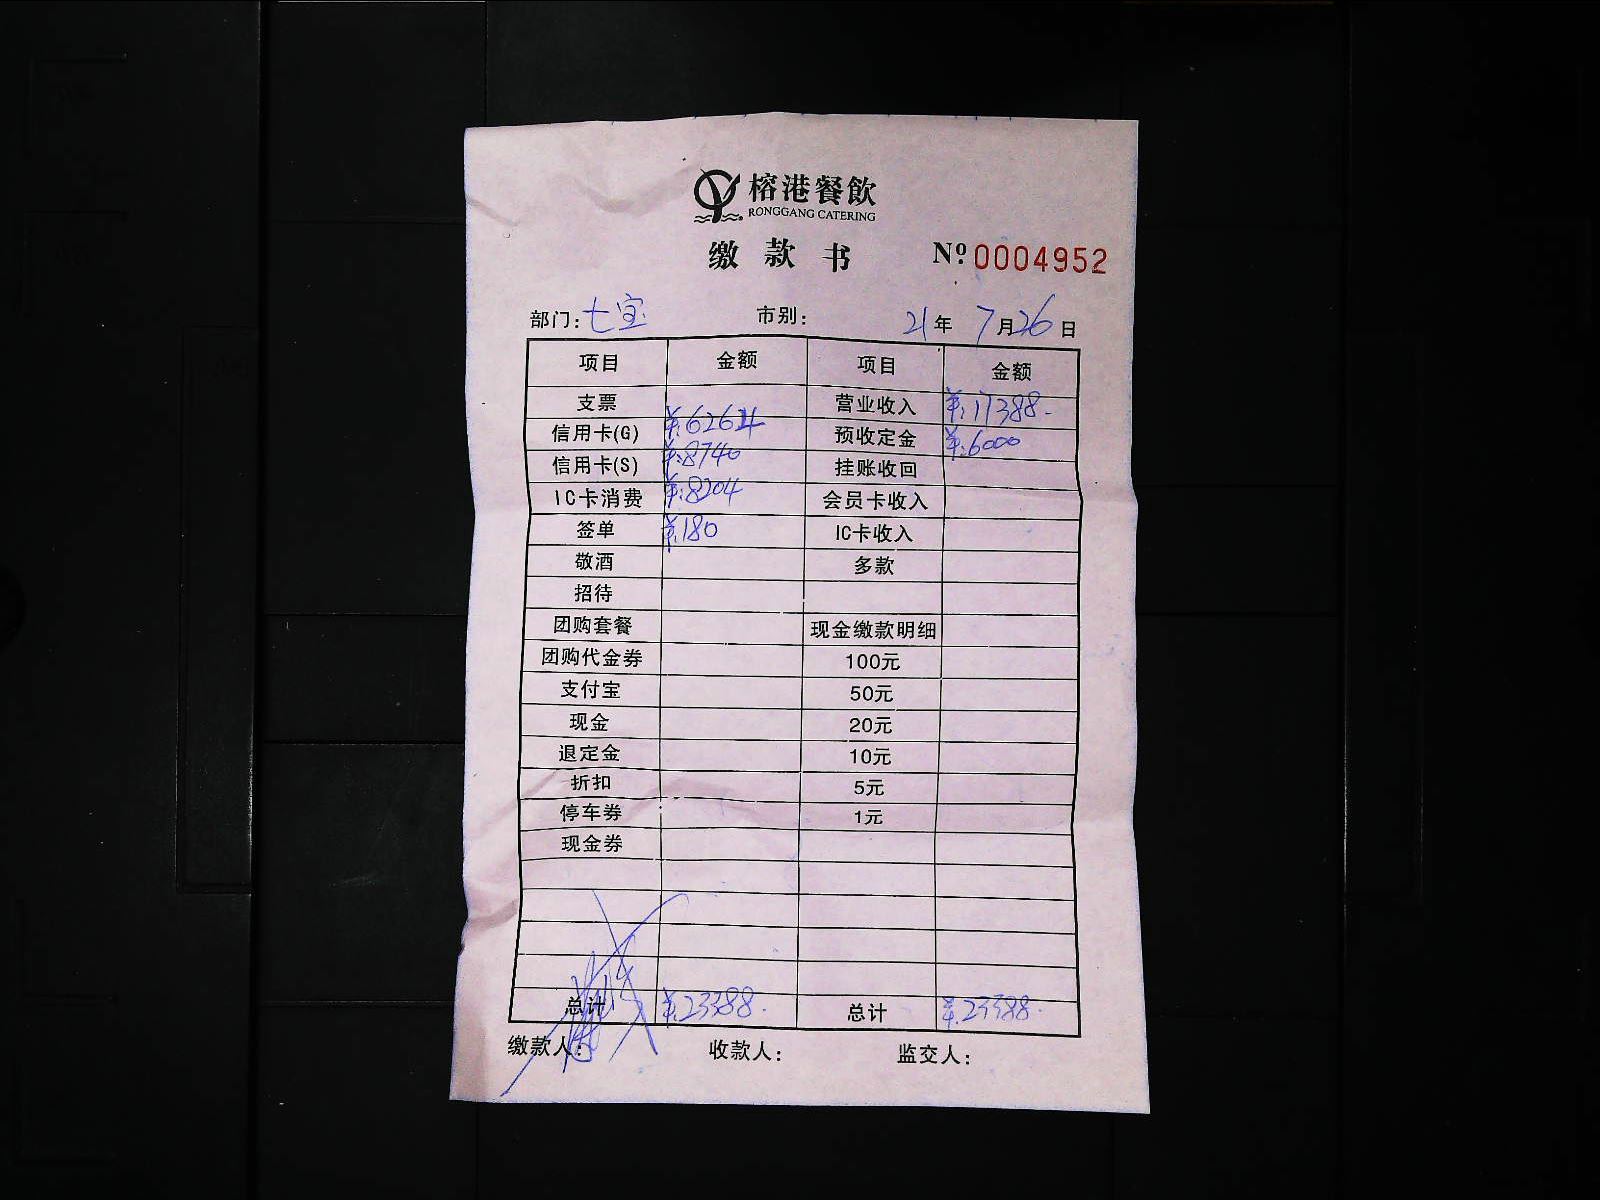 榕港餐飲
RONGGANG CATERING
缴款书 Nº 0004952
部门: 七宝 市别: 21年 7月26日
项目 金额 项目 金额
支票 营业收入 ¥:17388.
信用卡(G) ¥:6264 预收定金 ¥:6000
信用卡(S) ¥:8740 挂账收回
IC卡消费 ¥:8204 会员卡收入
签单 ¥:180 IC卡收入
敬酒 多款
招待
团购套餐 现金缴款明细
团购代金券 100元
支付宝 50元
现金 20元
退定金 10元
折扣 5元
停车券 1元
现金券
总计 ¥:23388. 总计 ¥:23388.
缴款人: 收款人: 监交人: